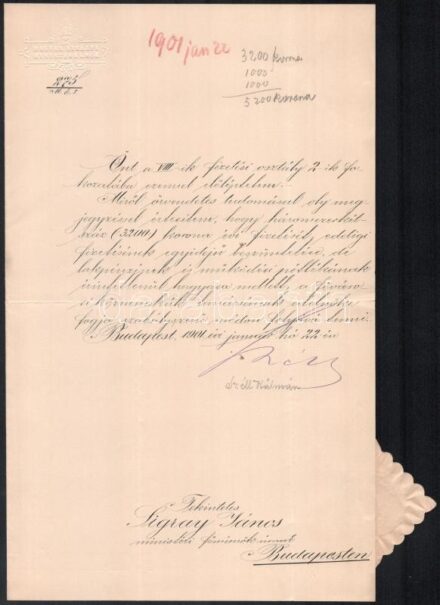 1901 jan 22
3200 korona
1000
1000
5200 korona
275
M. E. I.
Önt a VIII-ik fizetési osztály 2-ik fo-
kozatába ezennel előléptetem.
Miről örvendetes tudomásul oly meg-
jegyzéssel értesítem, hogy háromezerkét-
száz (3200) korona évi fizetését, eddigi
fizetésének egyidejű beszüntetése, de
lakpénzének és működési pótlékának
érintetlenül hagyása mellett, a fővárosi
fogja szabályszerű módon folyóvá tenni.
Budapest, 1901 évi január hó 22 én
Széll
Széll Kálmán
Tekintetes
Sigray János
miniszteri urnak
Budapesten